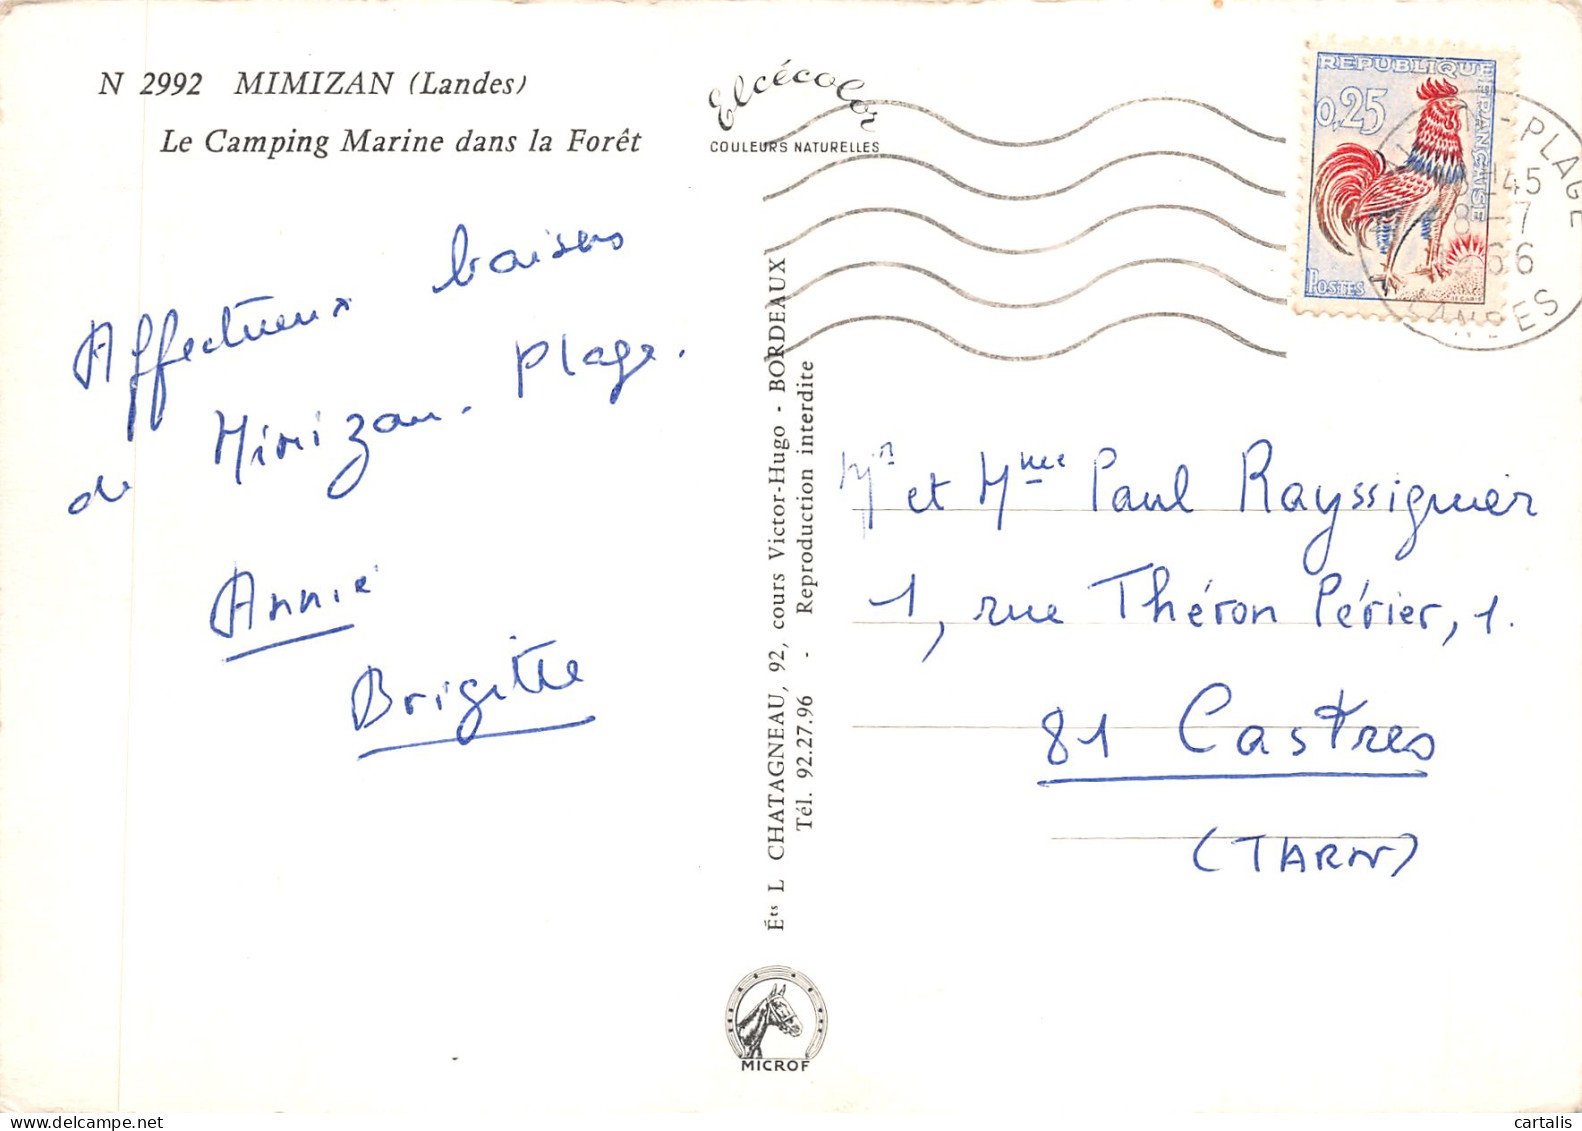 N 2992 MIMIZAN (Landes)
Le Camping Marine dans la Forêt
Elcécolor
COULEURS NATURELLES
REPUBLIQUE FRANÇAISE
0,25
POSTES
-PLAGE
18H45
8-7
1966
LANDES
Affectueux baisers
de Mimizan-Plage.
Annie
Brigitte
Éts L CHATAGNEAU, 92, cours Victor-Hugo - BORDEAUX
Tél. 92.27.96 - Reproduction interdite
Mr et Mme Paul Rayssiguier
1, rue Théron Périer, 1.
81 Castres
(TARN)
MICROF
cartalis